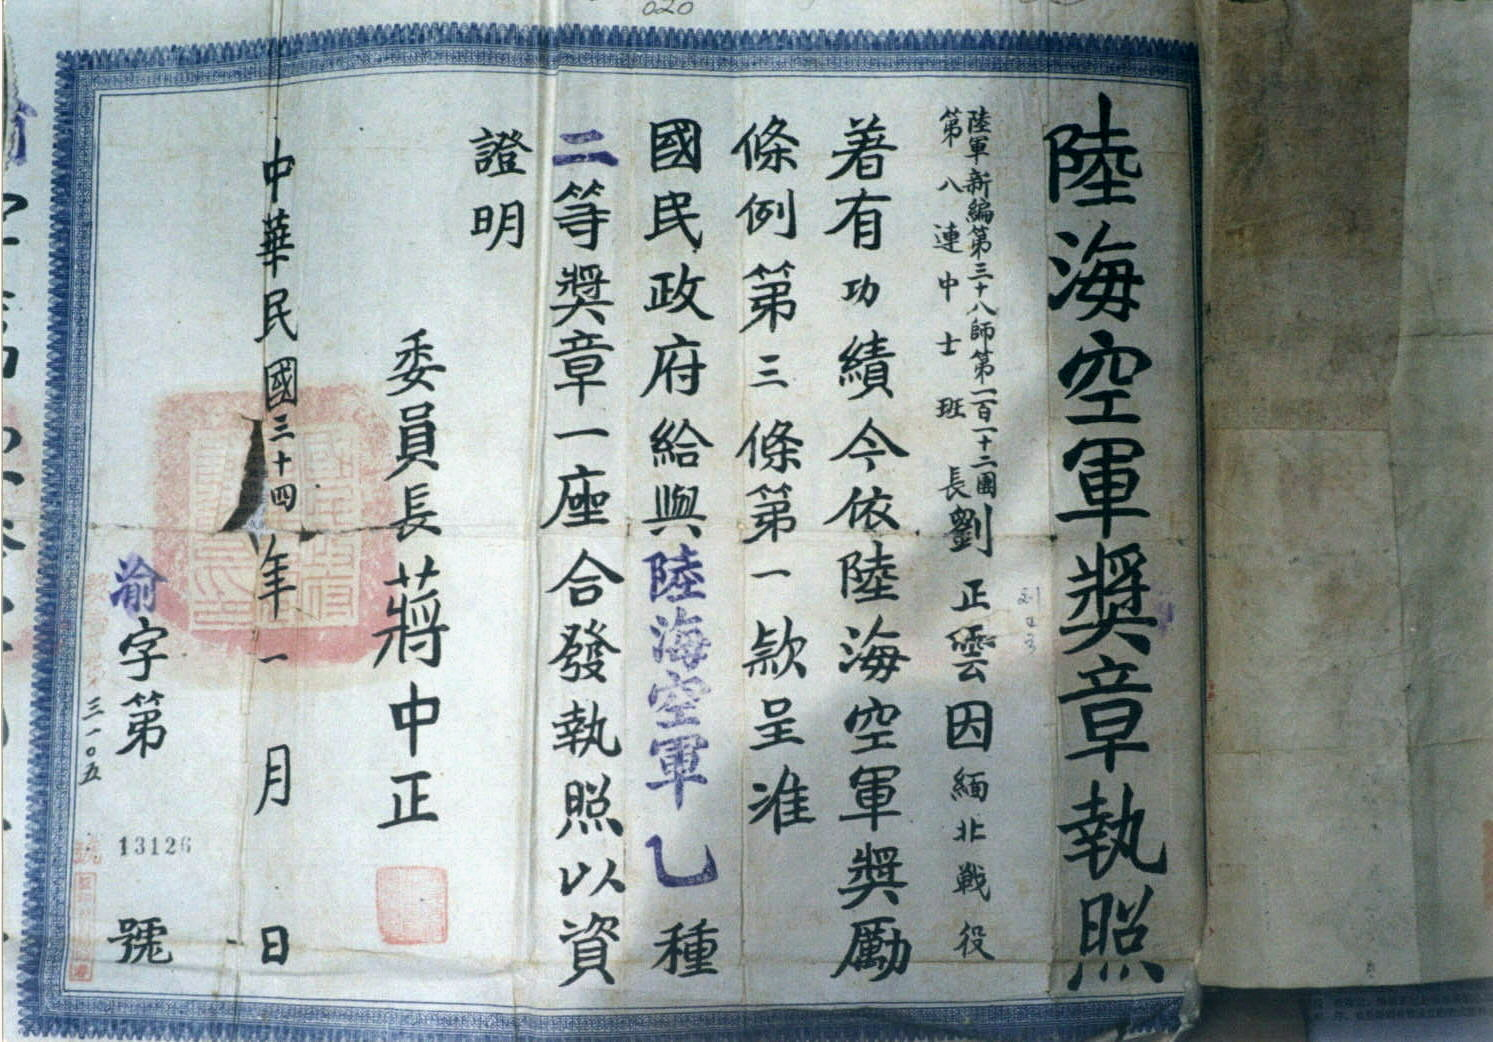 020
陸海空軍獎章執照
陸軍新編第三十八師第一百一十二團
第八連中士班長劉正雲因緬北戰役
著有功績今依陸海空軍獎勵
條例第三條第一款呈准
國民政府給與陸海空軍乙種
二等獎章一座合發執照以資
證明
委員長蔣中正
中華民國三十四年一月日
渝字第13126號
三一〇五